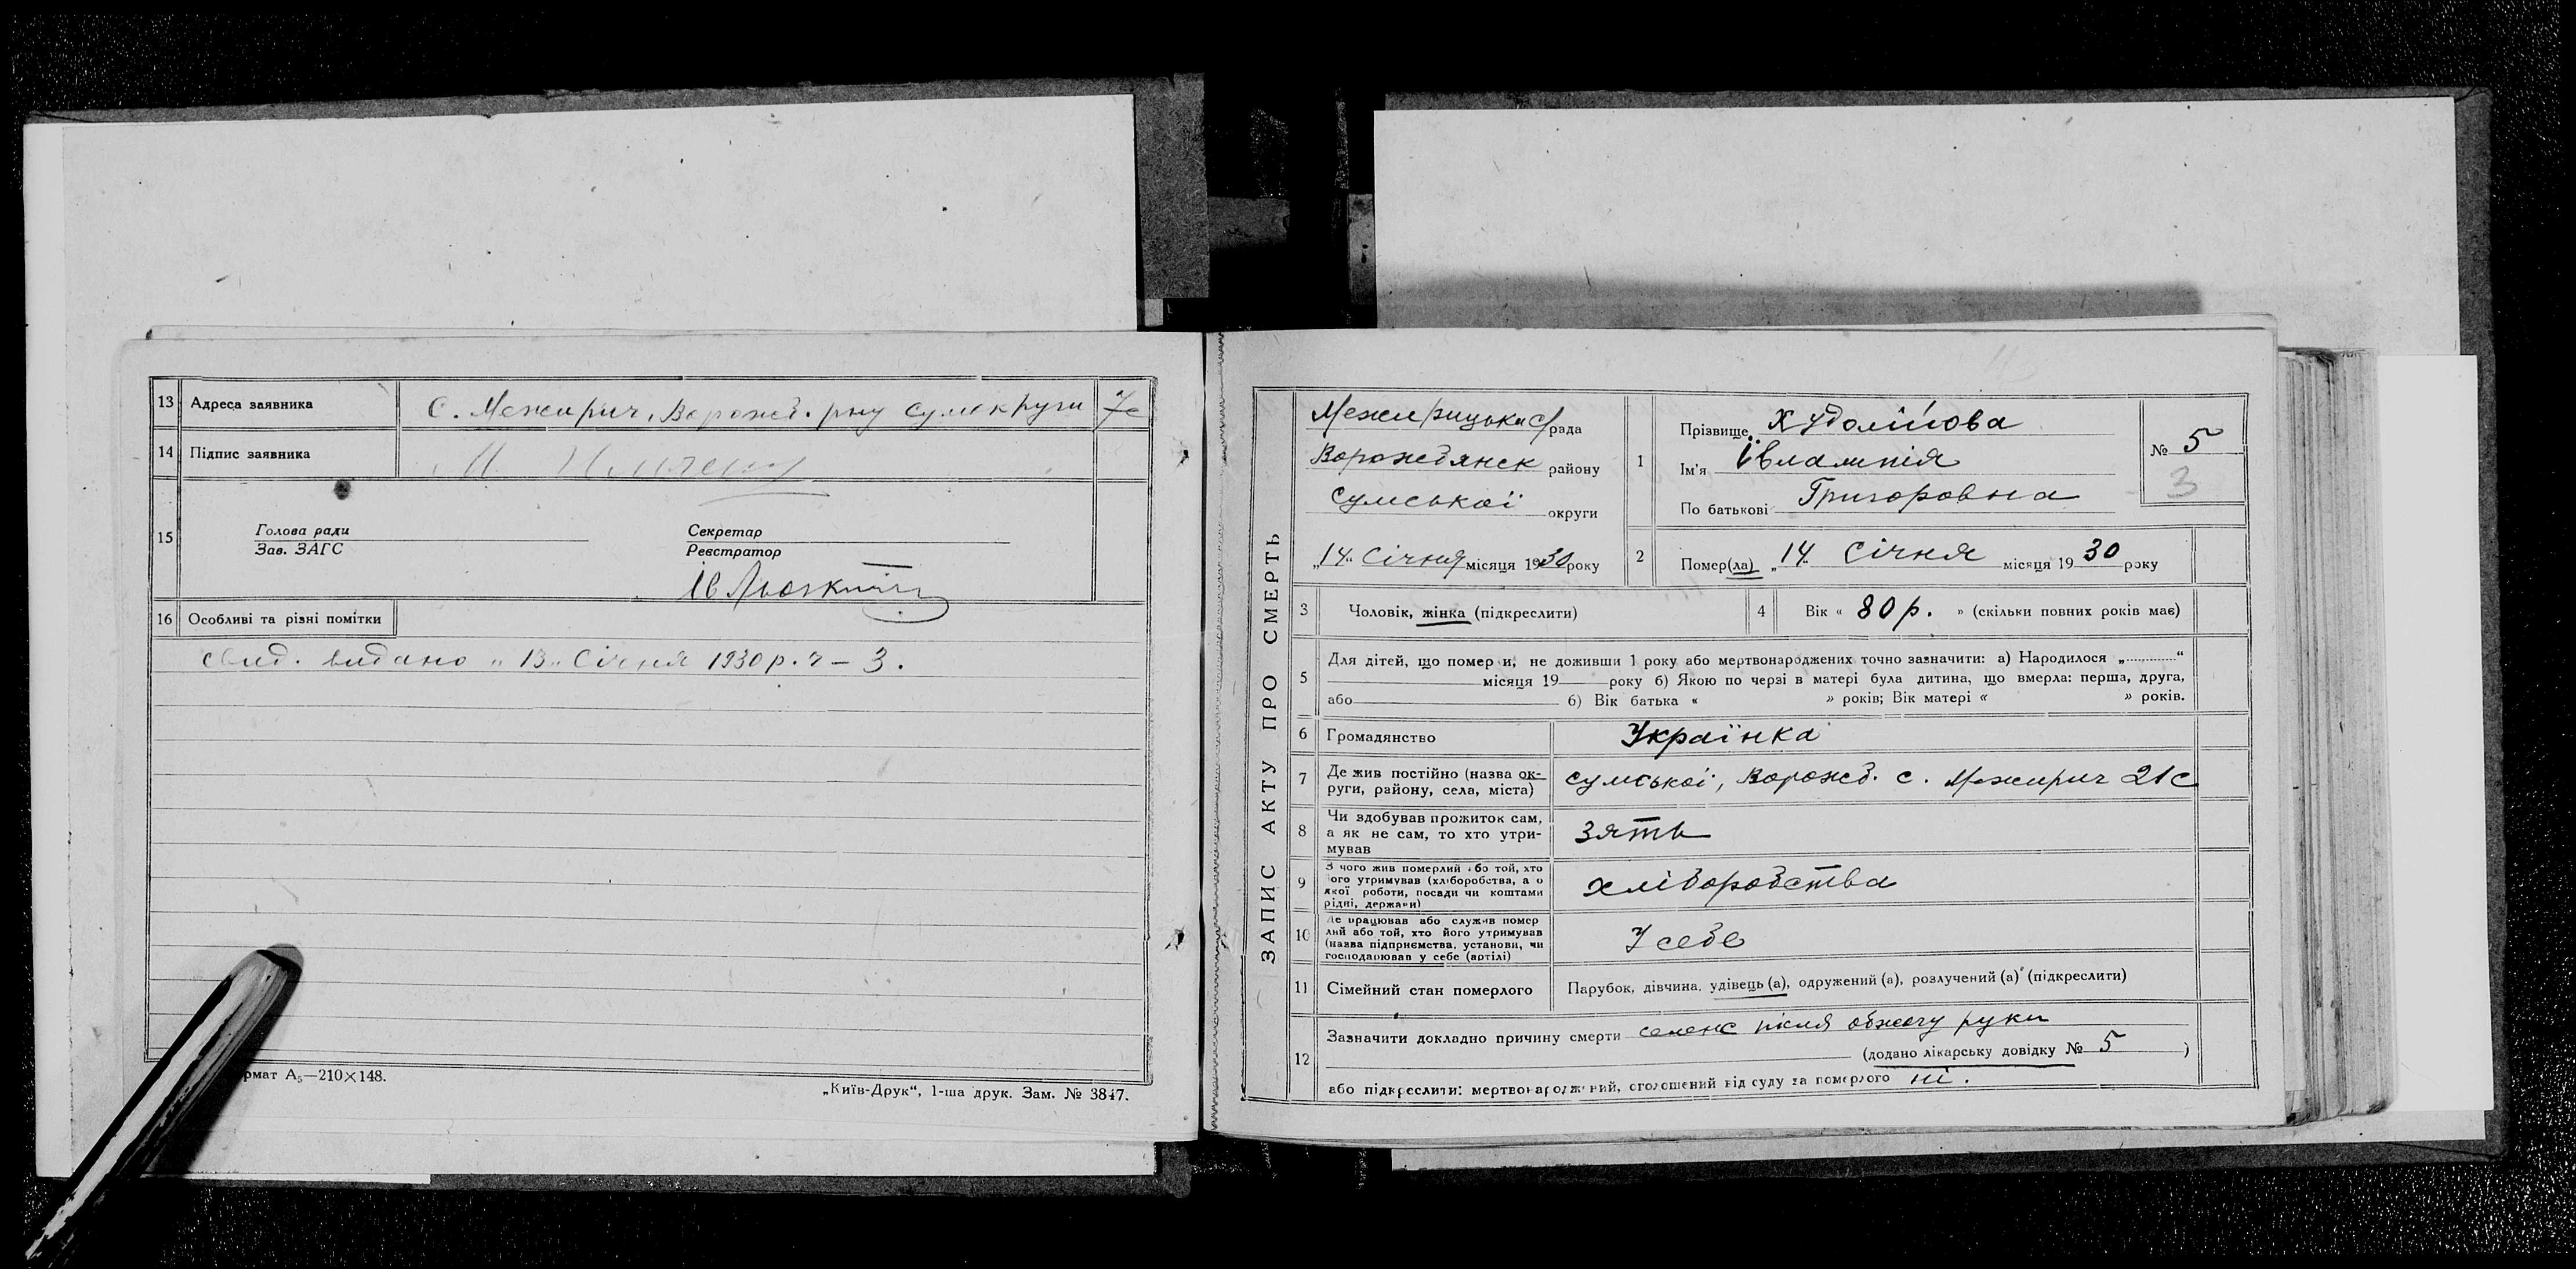 13 Адреса заявника С. Межирич, Ворожб. р-ну Сумокруги 7с
14 Підпис заявника
15 Голова ради Секретар
Зав. ЗАГС Реєстратор
16 Особливі та різні помітки
свид. видано „13„ Січня 1930 р. ч – 3.
рмат А₅—210×148.
„Київ-Друк“, 1-ша друк. Зам. № 3847.
ЗАПИС АКТУ ПРО СМЕРТЬ
Межирицька с/рада
Ворожбянск району
Сумської округи
„14„ Січня місяця 1930 року
1 Прізвище Худоліїова
Ім'я Івлампія
По батькові Григоровна
№ 5
3
2 Помер(ла) „14„ Січня місяця 1930 року
3 Чоловік, жінка (підкреслити)
4 Вік « 80 р. » (скільки повних років має)
5 Для дітей, що помер и, не доживши 1 року або мертвонароджених точно зазначити: а) Народилося „ “
місяця 19 року б) Якою по черзі в матері була дитина, що вмерла: перша, друга,
або б) Вік батька « » років; Вік матері « » років.
6 Громадянство Українка
7 Де жив постійно (назва ок-
руги, району, села, міста) Сумської, Ворожб. с. Межирич 21с
8 Чи здобував прожиток сам,
а як не сам, то хто утри-
мував зять
9 З чого жив померлий або той, хто
ого утримував (хліборобства, а о
якої роботи, посади чи коштами
рідні, держави) хліборобства
10 Де працював або служив помер
лий або той, хто його утримував
(назва підприємства, установи, чи
господарював у себе (артілі) У себе
11 Сімейний стан померлого Парубок, дівчина, удівець (а), одружений (а), розлучений (а) (підкреслити)
12 Зазначити докладно причину смерти після обжогу руки
(додано лікарську довідку № 5 )
або підкреслити: мертвонароджений, оголошений від суду за померлого ні.